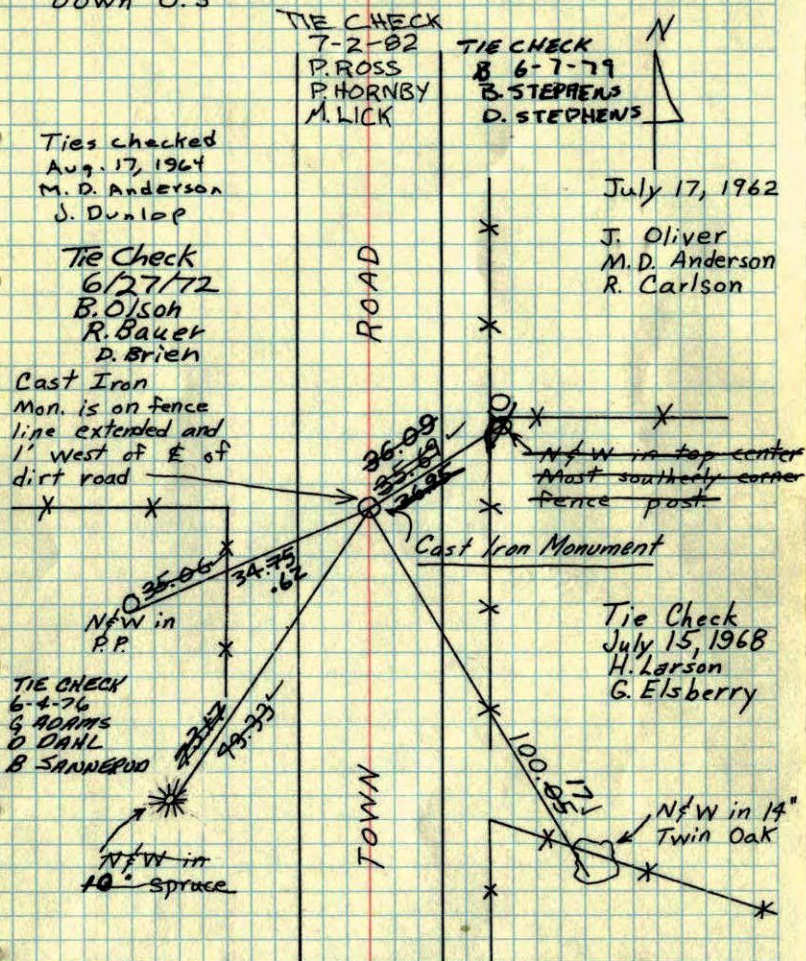 Down 0.3
TIE CHECK
7-2-82
P. ROSS
P. HORNBY
M. LICK
TIE CHECK
6-7-79
B. STEPHENS
D. STEPHENS
N
Ties checked
Aug. 17, 1964
M. D. Anderson
J. Dunlop
July 17, 1962
J. Oliver
M.D. Anderson
R. Carlson
Tie Check
6/27/72
B. Olson
R. Bauer
D. Brien
ROAD
Cast Iron
Mon. is on fence
line extended and
1' west of ℄ of
dirt road
36.09
35.69 ✓
N&W in top center
Most southerly corner
fence post.
Cast Iron Monument
35.06
34.75
.62
N&W in
P.P.
Tie Check
July 15, 1968
H. Larson
G. Elsberry
TIE CHECK
6-4-76
G ADAMS
D DAHL
B SANNERUD
43.33 ✓
100.05
17 ✓
N&W in 14"
Twin Oak
N&W in
10" spruce
TOWN